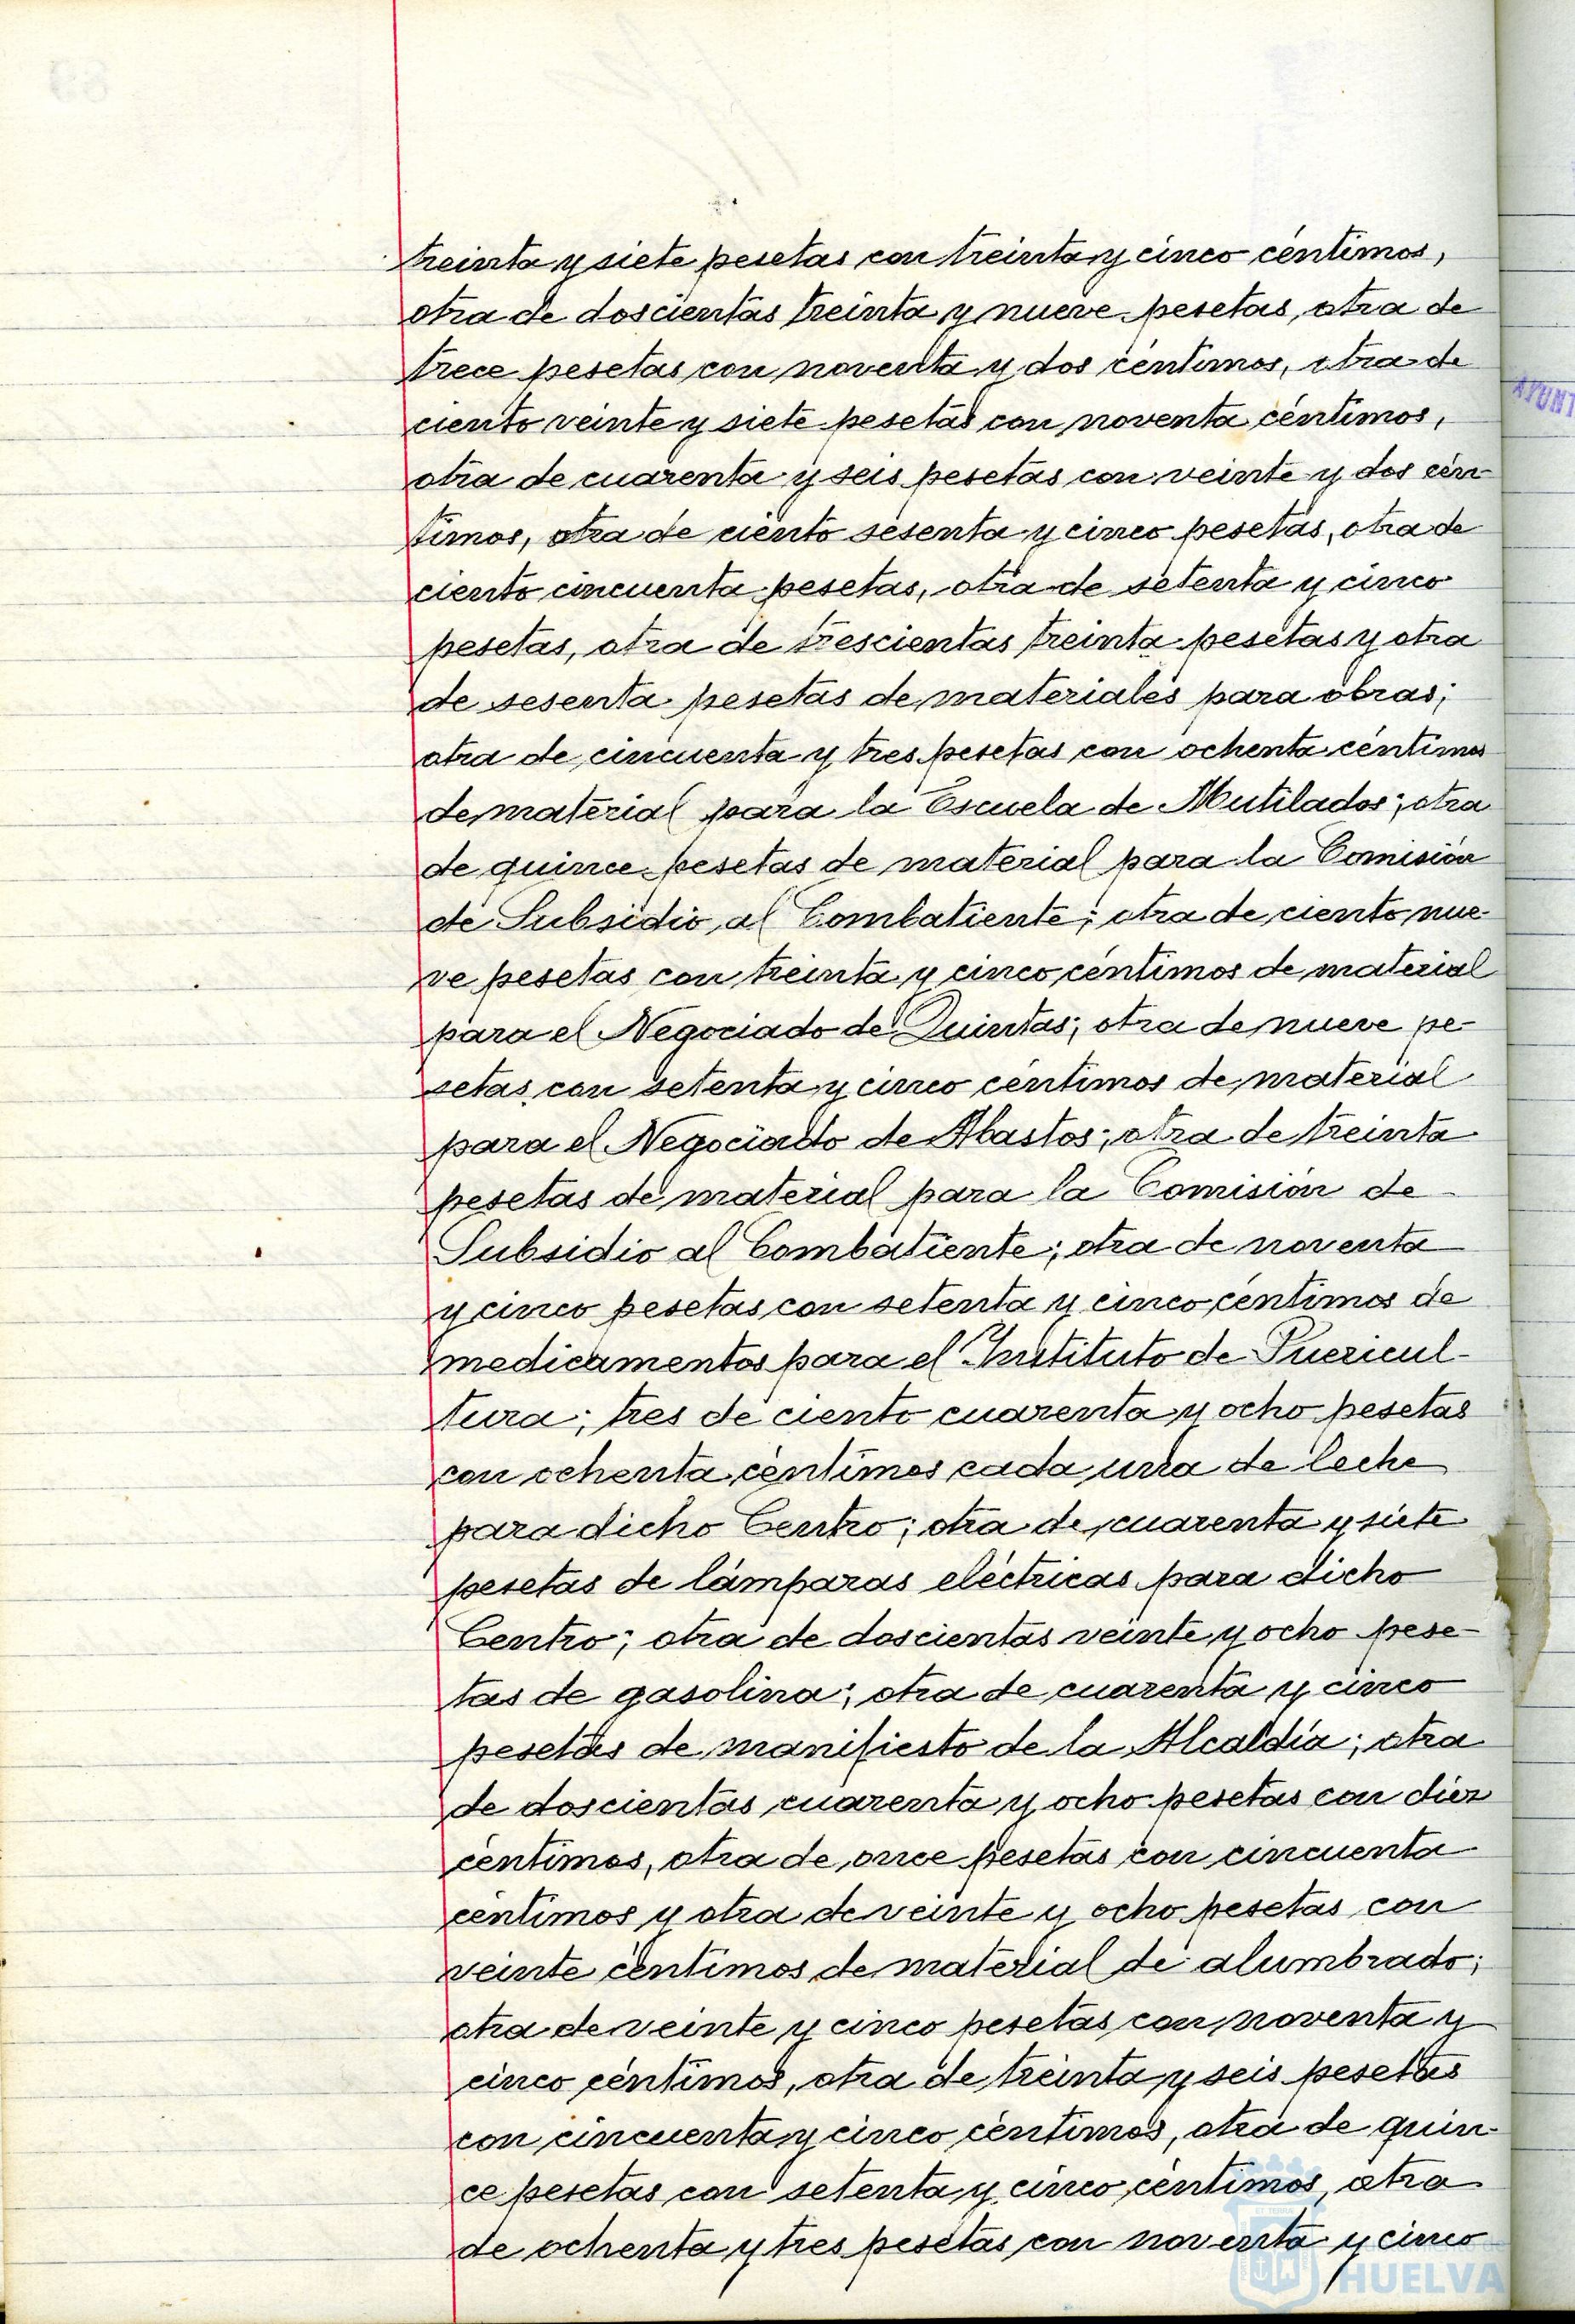 treinta y siete pesetas con treinta y cinco céntimos,
otra de doscientas treinta y nueve pesetas, otra de
trece pesetas con noventa y dos céntimos, otra de
ciento veinte y siete pesetas con noventa céntimos,
otra de cuarenta y seis pesetas con veinte y dos cén-
timos, otra de ciento sesenta y cinco pesetas, otra de
ciento cincuenta pesetas, otra de setenta y cinco
pesetas, otra de trescientas treinta pesetas y otra
de sesenta pesetas de materiales para obras;
otra de cincuenta y tres pesetas con ochenta céntimos
de material para la Escuela de Mutilados; otra
de quince pesetas de material para la Comisión
de Subsidio al Combatiente; otra de ciento nue-
ve pesetas con treinta y cinco céntimos de material
para el Negociado de Quintas; otra de nueve pe-
setas con setenta y cinco céntimos de material
para el Negociado de Abastos; otra de treinta
pesetas de material para la Comisión de
Subsidio al Combatiente; otra de noventa
y cinco pesetas con setenta y cinco céntimos de
medicamentos para el Instituto de Puericul-
tura; tres de ciento cuarenta y ocho pesetas
con ochenta céntimos cada una de leche
para dicho Centro; otra de cuarenta y siete
pesetas de lámparas eléctricas para dicho
Centro; otra de doscientas veinte y ocho pese-
tas de gasolina; otra de cuarenta y cinco
pesetas de manifiesto de la Alcaldía; otra
de doscientas cuarenta y ocho pesetas con diez
céntimos, otra de once pesetas con cincuenta
céntimos y otra de veinte y ocho pesetas con
veinte céntimos de material de alumbrado;
otra de veinte y cinco pesetas con noventa y
cinco céntimos, otra de treinta y seis pesetas
con cincuenta y cinco céntimos, otra de quin-
ce pesetas con setenta y cinco céntimos, otra
de ochenta y tres pesetas con noventa y cinco
HUELVA